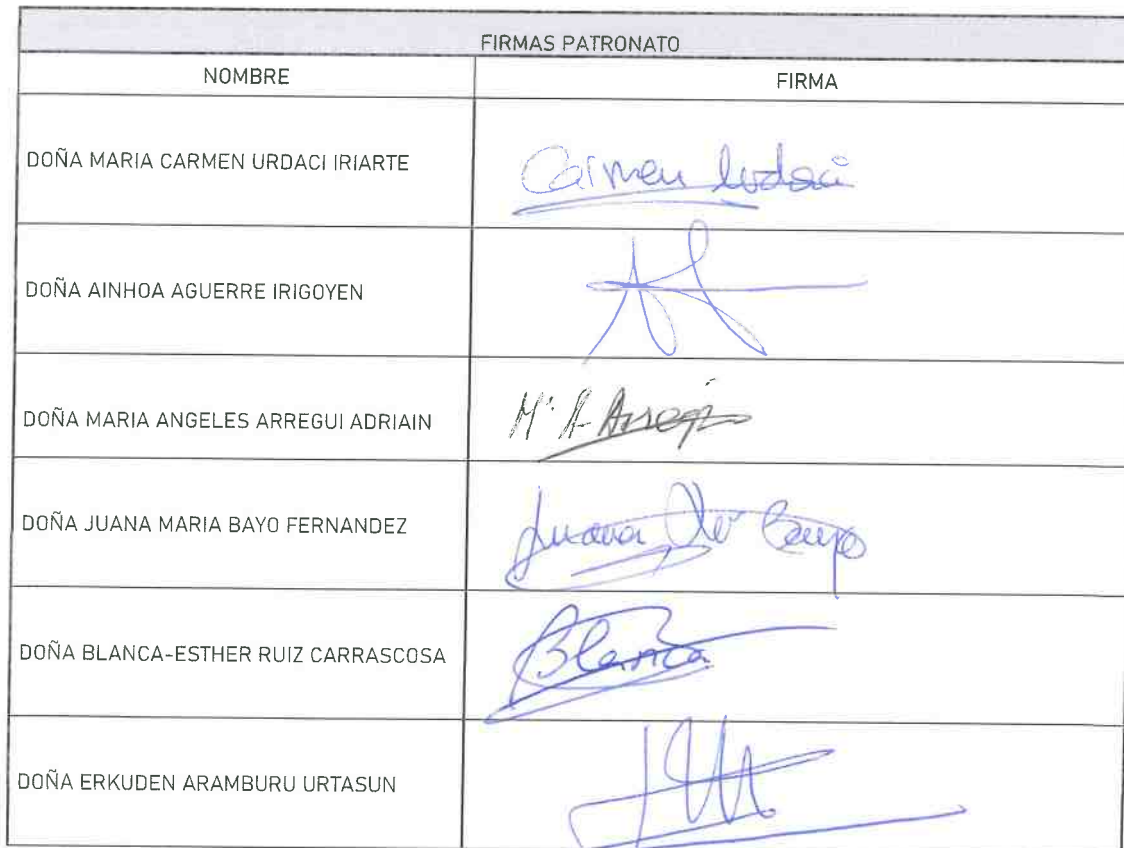 FIRMAS PATRONATO
NOMBRE FIRMA
DOÑA MARIA CARMEN URDACI IRIARTE Carmen Urdaci
DOÑA AINHOA AGUERRE IRIGOYEN
DOÑA MARIA ANGELES ARREGUI ADRIAIN Mª A Arregui
DOÑA JUANA MARIA BAYO FERNANDEZ Juana Mª Bayo
DOÑA BLANCA-ESTHER RUIZ CARRASCOSA Blanca
DOÑA ERKUDEN ARAMBURU URTASUN